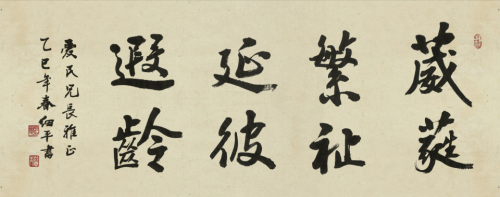 葳蕤
繁祉
延彼
遐齡
爱民兄長雅正
乙巳年春細平書